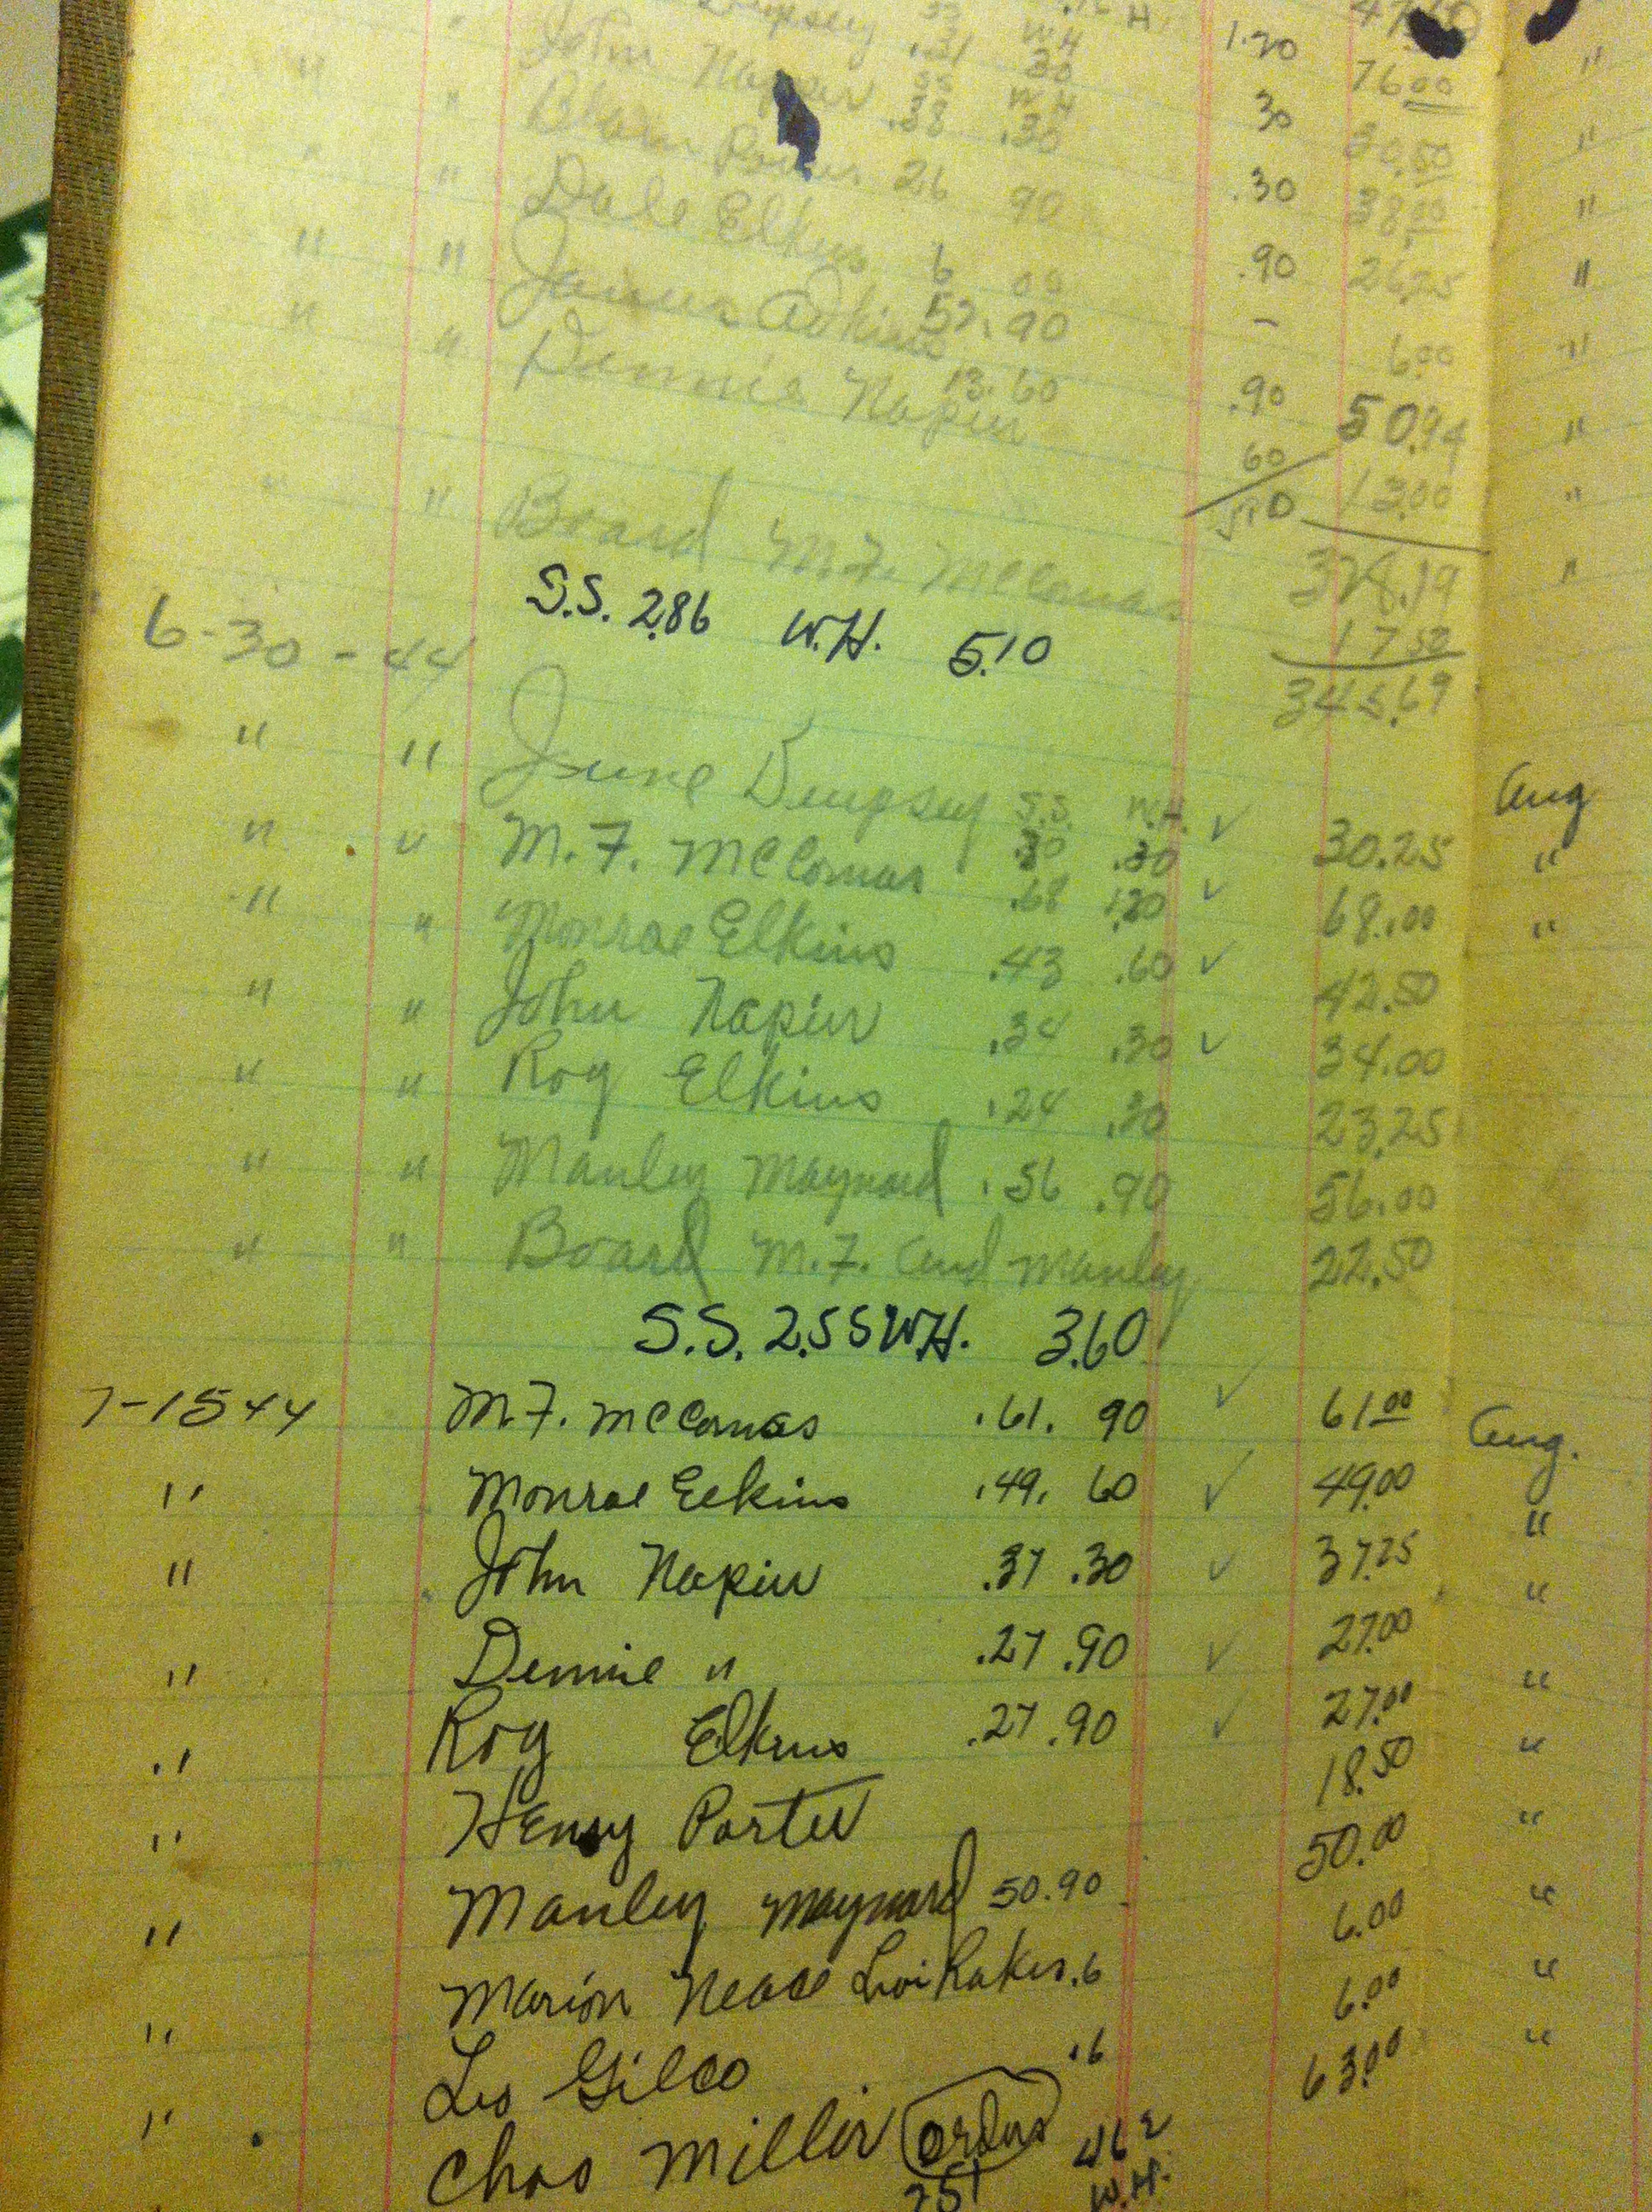 " John Napier .31 .30 1.20 76.00 "
" " .38 .30 30 30.50 "
" " Dale Elkins 26 90 .30 38.00 "
" " James Adkins 6 00 .90 26.25 "
" " Dennie Napier 52.90 - 6.00 "
13.60 .90 50.94 "
60 13.00 "
" " Board M.F. McComas 5.10 328.19 "
S.S. 2.86 W.H. 5.10 17.50
6-30-44 345.69
" " June Dempsey S.S. W.H. ✓ Aug
" " M.F. McComas .30 .30 30.25 "
" " Monroe Elkins .68 1.20 ✓ 68.00 "
" " John Napier .43 .60 ✓ 42.50
" " Roy Elkins .34 .30 ✓ 34.00
.24 .30 23.25
" " Manley Maynard .56 .90 56.00
" " Board M.F. and Manley 22.50
S.S. 2.55 W.H. 3.60
7-15 44 M.F. McComas .61. 90 ✓ 61.00 Aug.
" Monroe Elkins .49. 60 ✓ 49.00 "
" John Napier .37 .30 ✓ 37.25 "
" Dennie " .27 .90 ✓ 27.00 "
" Roy Elkins .27 .90 ✓ 27.00 "
" Henry Porter 18.50 "
" Manley Maynard 50.90 50.00 "
" Marion Neace .6 6.00 "
" Les .16 6.00 "
Chas Miller 63.00
251 462
W.H.